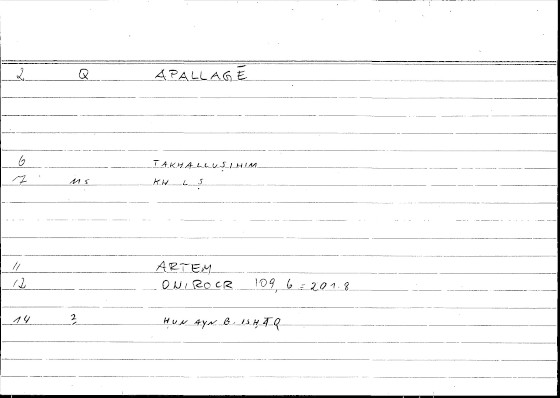 2 Q APALLAGĒ
6 TAKHALLUṢIHIM
7 MS KH L Ṣ
11 ARTEM
12 ONIROCR 109, 6 = 201.8
14 2 ḤUN AYN B. ISḤĀQ